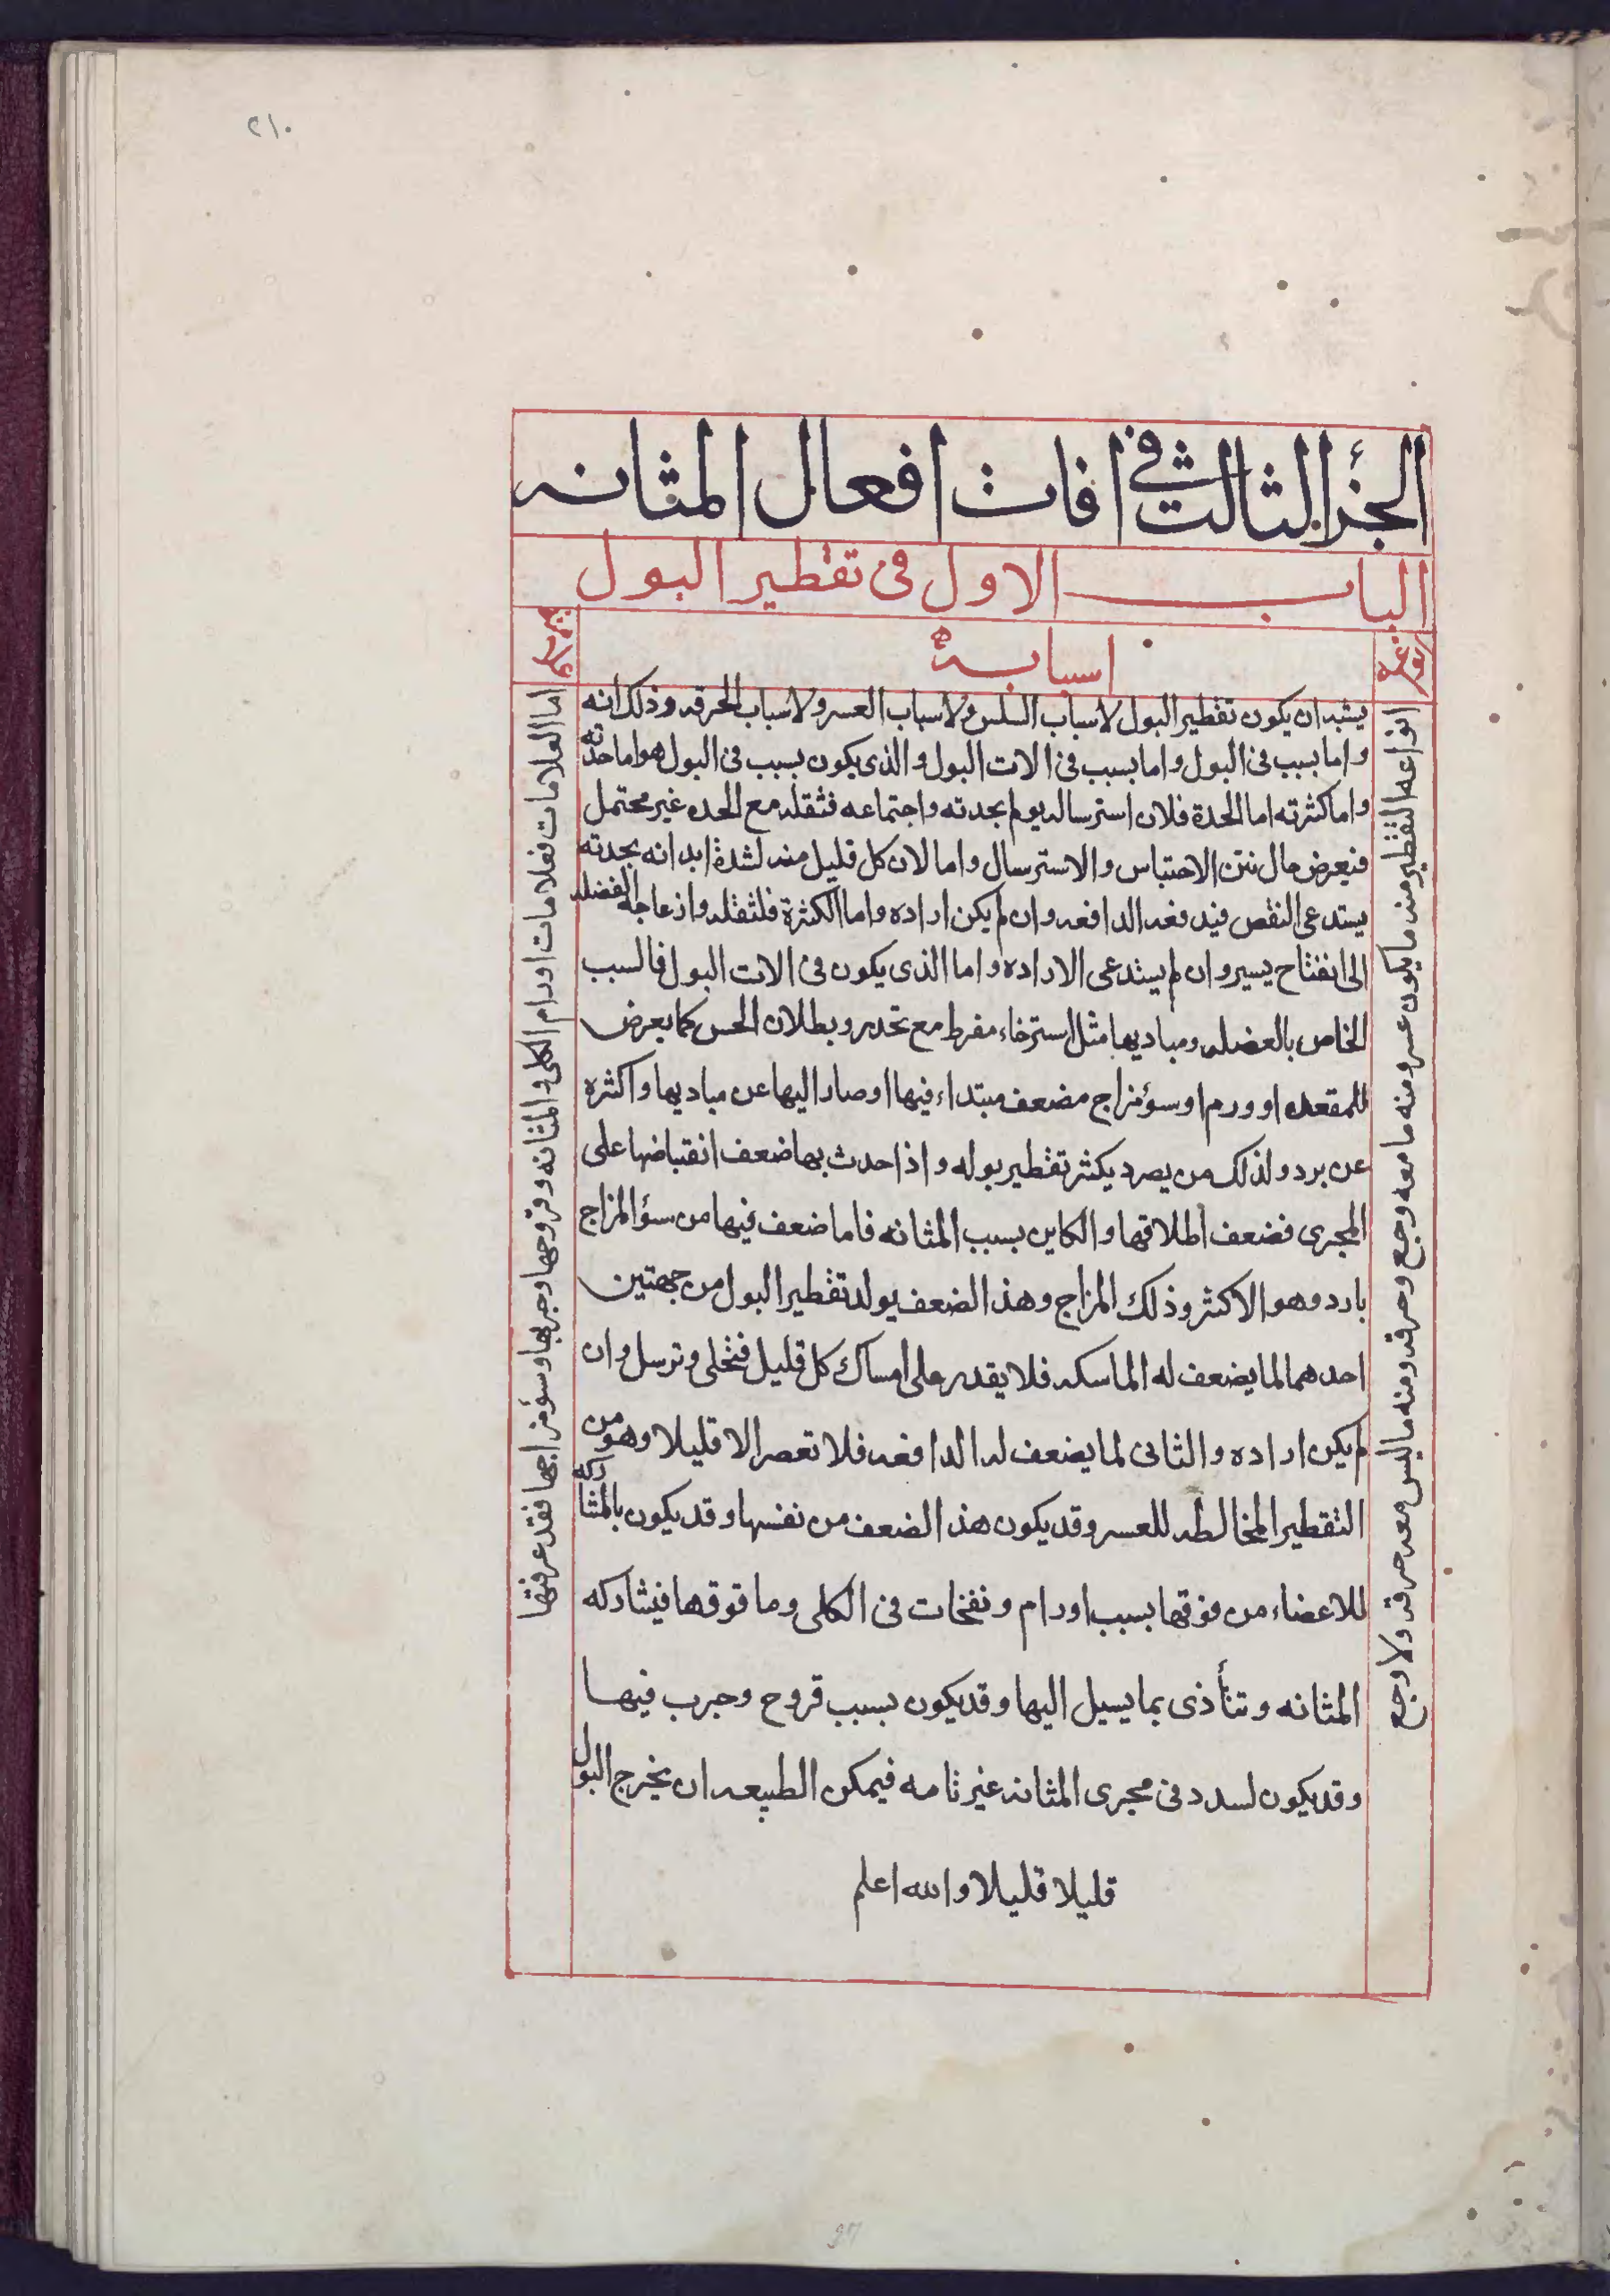 ٢١٠
الجزء الثالث في افات افعال المثانه
الباب الاول فى تقطير البول
نوعه
اسبابه
انواعه التقطير منه ما يكون عسر ومنه ما معه وجع وحرقه ومنه ما ليس معه حرقه ولا وجع
يشبه ان يكون تقطير البول لاسباب السلس ولاسباب العسر ولاسباب الحرقه وذلك انه
واما بسبب فى البول واما بسبب فى الات البول والذى يكون بسبب فى البول هو اما حدته
واما كثرته اما الحدة فلان استرساله يولم بحدته واجتماعه فثقله مع الحده غير محتمل
فيعرض حال بين الاحتباس والاسترسال واما لان كل قليل منه لشدة ابدانه بحدته
يستدعى النقص فيدفعه الدافعه وان لم يكن اراده واما الكثرة فلثقله وازعاجه العضله
الى انفتاح يسير وان لم يستدعى الاراده واما الذى يكون فى الات البول فالسبب
الخاص بالعضله ومباديها مثل استرخاء مفرط مع تخدر وبطلان الحس كما يعرض
للمقعده او ورم او سؤ مزاج مضعف مبتداء فيها او صار اليها عن مباديها واكثره
عن برد ولذلك من يصرد يكثر تقطير بوله واذا حدث بها ضعف انقباضها على
المجرى فضعف اطلاقها والكاين بسبب المثانه فاما ضعف فيها من سؤ المزاج
بارد وهو الاكثر وذلك المزاج وهذا الضعف يولد تقطير البول من جهتين
احدهما لما يضعف له الماسكه فلا يقدر على امساك كل قليل فتخلى وترسل وان
لم يكن اراده والثانى لما يضعف له الدافعه فلا تعصر الا قليلا وهو من
التقطير المخالطه للعسر وقد يكون هذا الضعف من نفسها وقد يكون بالمشاركه
للاعضاء من فوقها بسبب اورام ونفخات فى الكلى وما فوقها فيشاركه
المثانه وتتأذى بما يسيل اليها وقد يكون بسبب قروح وجرب فيها
وقد يكون لسدد فى مجرى المثانه غير تامه فيمكن الطبيعه ان يخرج البول
قليلا قليلا والله اعلم
اما العلامات فعلامات اورام الكلى والمثانه وقروحها وجربها وسؤ مزاجها فقد عرفتها